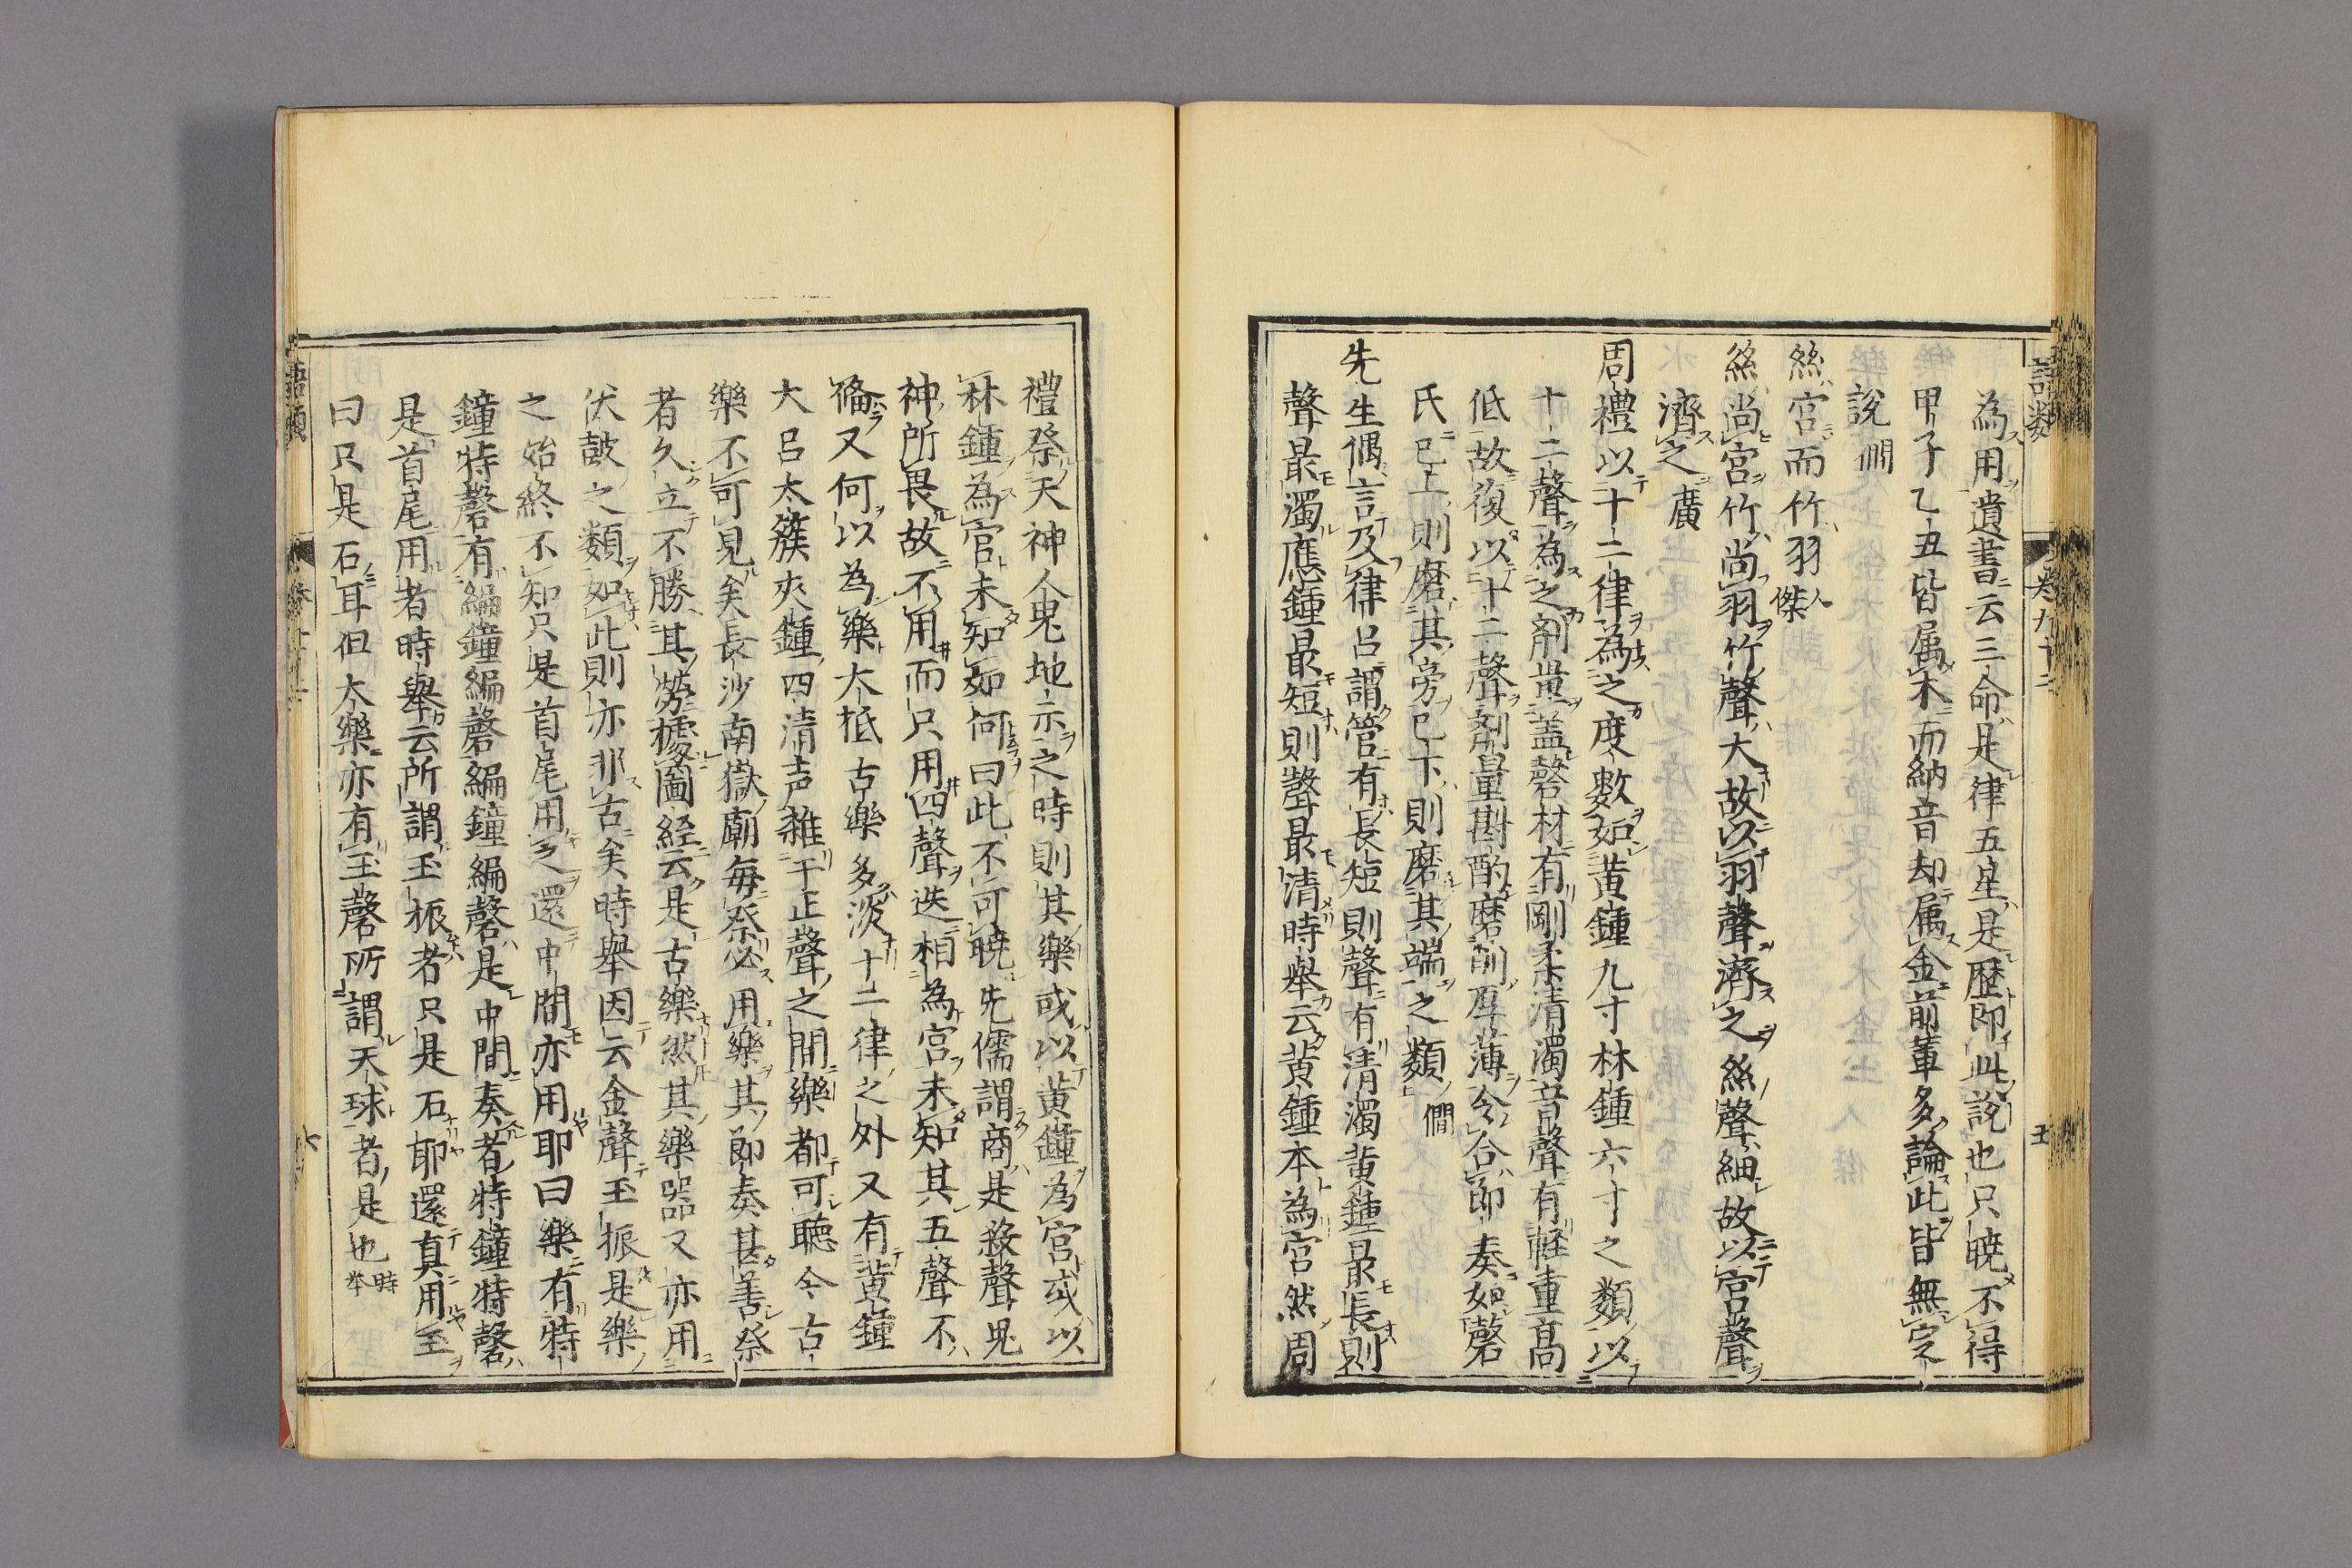 語類 卷九十二 五
為用遺書云三命是律五星是歴即此說也只曉不得
甲子乙丑皆属木而納音却属金前軰多論此皆無定
說 僩
絲宮而竹羽 人傑
絲尚宮竹尚羽竹聲大故以羽聲濟之絲聲細故以宮聲
濟之 廣
周禮以十二律為之度數如黃鍾九寸林鍾六寸之類以
十二聲為之劑量蓋磬材有剛柔清濁音聲有輕重高
低故復以十二聲劑量斟酌磨削厚薄令合節奏如磬
氏已上則磨其旁已下則磨其端之類 僩
先生偶言及律呂謂管有長短則聲有清濁黃鍾最長則
聲最濁應鍾最短則聲最清時舉云黃鍾本為宮然周
禮祭天神人鬼地示之時則其樂或以黃鍾為宮或以
林鍾為宮未知如何曰此不可曉先儒謂商是殺聲鬼
神所畏故不用而只用四聲迭相為宮未知其五聲不
俻又何以為樂大抵古樂多淡十二律之外又有黃鍾
大呂太簇夾鍾四清声雜于正聲之間樂都可聽今古
樂不可見矣長沙南嶽廟每祭必用樂其節奏甚善祭
者久立不勝其勞據圖經云是古樂然其樂器又亦用
伏鼓之類如此則亦非古矣時舉因云金聲玉振是樂
之始終不知只是首尾用之還中間亦用耶曰樂有特
鐘特磬有編鐘編磬編鐘編磬是中間奏者特鐘特磬
是首尾用者時舉云所謂玉振者只是石耶還真用玉
曰只是石耳但大樂亦有玉磬所謂天球者是也 時举
語類 六